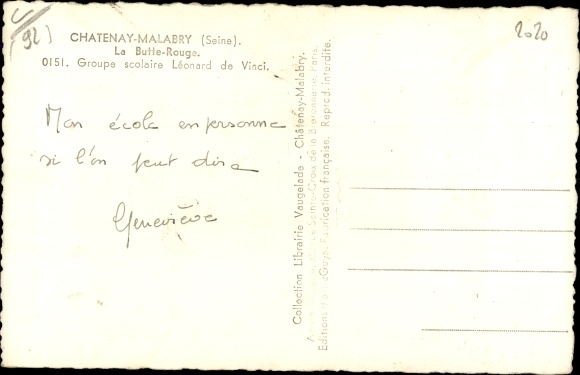 (92)
2020
CHATENAY-MALABRY (Seine).
La Butte-Rouge.
0151. Groupe scolaire Léonard de Vinci.
Mon école en personne
si l'on peut dire
Geneviève
Collection Librairie Vaugelade - Châtenay-Malabry.
Sainte-Croix de la Bretonnerie, Paris.
Editions Guy. Fabrication française. Reprod. interdite.